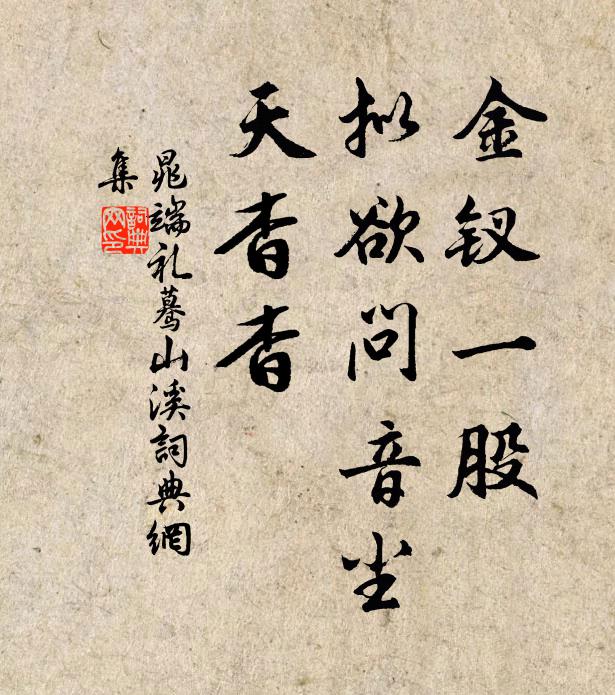 金钗一股
拟欲問音尘
天杳杳
晁端礼驀山溪詞典網
集
詞典
网印